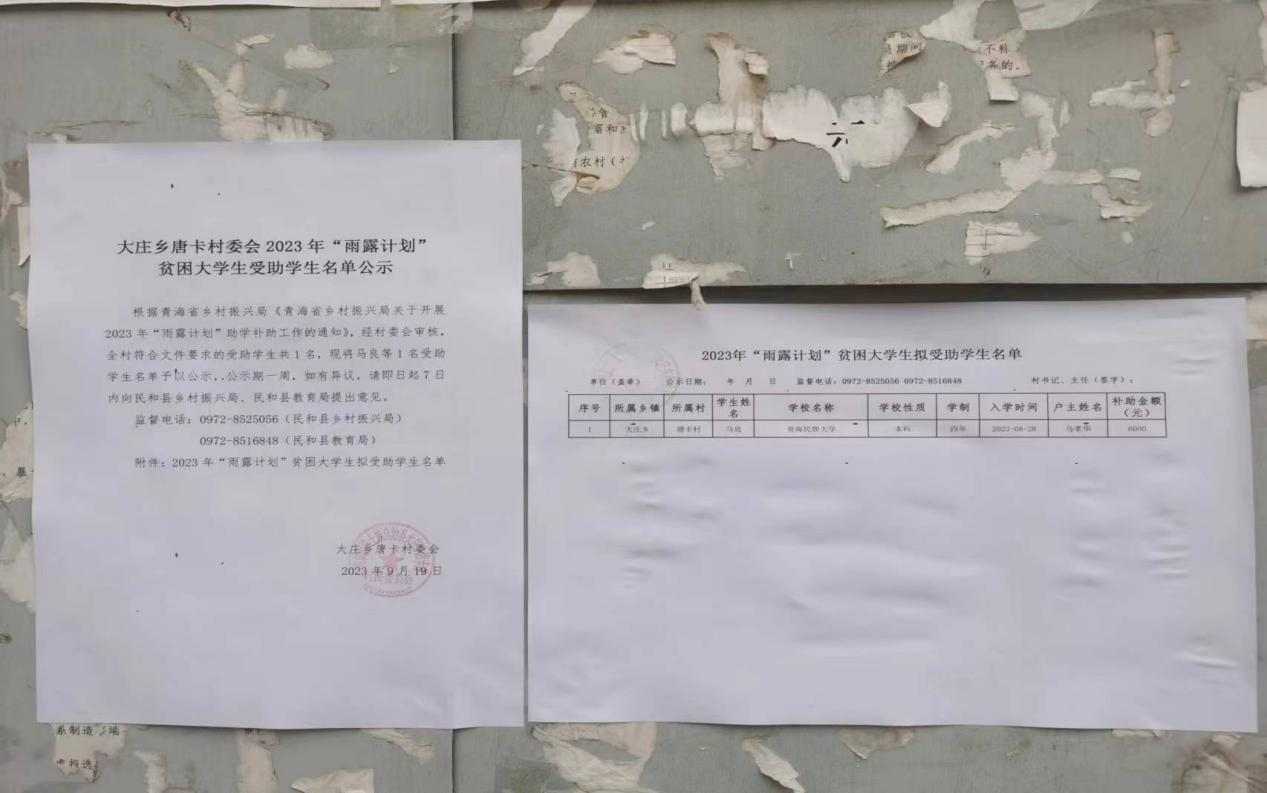 大庄乡唐卡村委会 2023 年“雨露计划”
贫困大学生受助学生名单公示
根据青海省乡村振兴局《青海省乡村振兴局关于开展
2023 年“雨露计划”助学补助工作的通知》，经村委会审核，
全村符合文件要求的受助学生共 1 名，现将马良等 1 名受助
学生名单予以公示，公示期一周，如有异议，请即日起 7 日
内向民和县乡村振兴局、民和县教育局提出意见。
监督电话：0972-8525056（民和县乡村振兴局）
0972-8516848（民和县教育局）
附件：2023 年“雨露计划”贫困大学生拟受助学生名单
大庄乡唐卡村委会
2023 年 9 月 19 日
2023年“雨露计划”贫困大学生拟受助学生名单
单位（盖章） 公示日期： 年 月 日 监督电话：0972-8525056 0972-8516848 村书记、主任（签字）：
序号 所属乡镇 所属村 学生姓名 学校名称 学校性质 学制 入学时间 户主姓名 补助金额（元）
1 大庄乡 唐卡村 马良 青海民族大学 本科 四年 2023-08-28 马孝华 6000
六
期间
不称
务的。
农村（
系制造
端